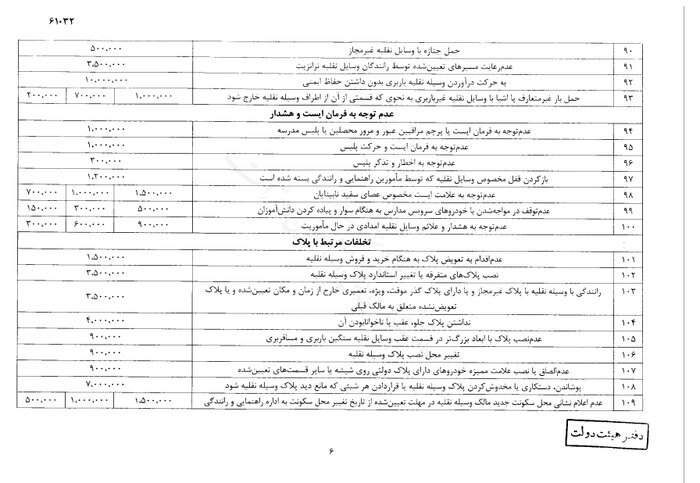 ۶۱۰۳۲
۹۰ حمل جنازه با وسایل نقلیه غیرمجاز ۵۰۰،۰۰۰
۹۱ عدم‌رعایت مسیرهای تعیین‌شده توسط رانندگان وسایل نقلیه ترانزیت ۳،۵۰۰،۰۰۰
۹۲ به حرکت درآوردن وسیله نقلیه باربری بدون داشتن حفاظ ایمنی ۱۰،۰۰۰،۰۰۰
۹۳ حمل بار غیرمتعارف یا اشیا با وسایل نقلیه غیرباربری به نحوی که قسمتی از آن از اطراف وسیله نقلیه خارج شود ۱،۰۰۰،۰۰۰ ۷۰۰،۰۰۰ ۲۰۰،۰۰۰
عدم توجه به فرمان ایست و هشدار
۹۴ عدم‌توجه به فرمان ایست یا پرچم مراقبین عبور و مرور محصلین یا پلیس مدرسه ۱،۰۰۰،۰۰۰
۹۵ عدم‌توجه به فرمان ایست و حرکت پلیس ۱،۰۰۰،۰۰۰
۹۶ عدم‌توجه به اخطار و تذکر پلیس ۳۰۰،۰۰۰
۹۷ بازکردن قفل مخصوص وسایل نقلیه که توسط مأمورین راهنمایی و رانندگی بسته شده است ۱،۲۰۰،۰۰۰
۹۸ عدم‌توجه به علامت ایست مخصوص عصای سفید نابینایان ۱،۵۰۰،۰۰۰ ۱،۰۰۰،۰۰۰ ۷۰۰،۰۰۰
۹۹ عدم‌توقف در مواجه‌شدن با خودروهای سرویس مدارس به هنگام سوار و پیاده کردن دانش‌آموزان ۵۰۰،۰۰۰ ۳۰۰،۰۰۰ ۱۵۰،۰۰۰
۱۰۰ عدم‌توجه به هشدار و علائم وسایل نقلیه امدادی در حال مأموریت ۹۰۰،۰۰۰ ۶۰۰،۰۰۰ ۳۰۰،۰۰۰
تخلفات مرتبط با پلاک
۱۰۱ عدم‌اقدام به تعویض پلاک به هنگام خرید و فروش وسیله نقلیه ۱،۵۰۰،۰۰۰
۱۰۲ نصب پلاک‌های متفرقه یا تغییر استاندارد پلاک وسیله نقلیه ۳،۵۰۰،۰۰۰
۱۰۳ رانندگی با وسیله نقلیه با پلاک غیرمجاز و یا دارای پلاک گذر موقت، ویژه، تعمیری خارج از زمان و مکان تعیین‌شده و یا پلاک
تعویض‌نشده متعلق به مالک قبلی ۳،۵۰۰،۰۰۰
۱۰۴ نداشتن پلاک جلو، عقب یا ناخوانابودن آن ۴،۰۰۰،۰۰۰
۱۰۵ عدم‌نصب پلاک با ابعاد بزرگ‌تر در قسمت عقب وسایل نقلیه سنگین باربری و مسافربری ۹۰۰،۰۰۰
۱۰۶ تغییر محل نصب پلاک وسیله نقلیه ۹۰۰،۰۰۰
۱۰۷ عدم‌الصاق یا نصب علامت ممیزه خودروهای دارای پلاک دولتی روی شیشه یا سایر قسمت‌های تعیین‌شده ۹۰۰،۰۰۰
۱۰۸ پوشاندن، دستکاری یا مخدوش‌کردن پلاک وسیله نقلیه یا قراردادن هر شیئی که مانع دید پلاک وسیله نقلیه شود ۷،۰۰۰،۰۰۰
۱۰۹ عدم اعلام نشانی محل سکونت جدید مالک وسیله نقلیه در مهلت تعیین‌شده از تاریخ تغییر محل سکونت به اداره راهنمایی و رانندگی ۱،۵۰۰،۰۰۰ ۱،۰۰۰،۰۰۰ ۵۰۰،۰۰۰
دفتر هیئت دولت
۶